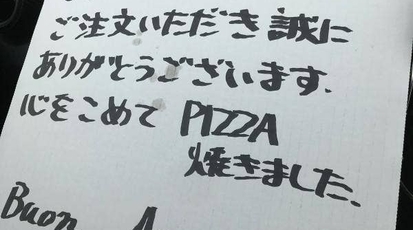 ご注文いただき誠に
ありがとうございます.
心をこめて PIZZA
焼きました.
Buon A